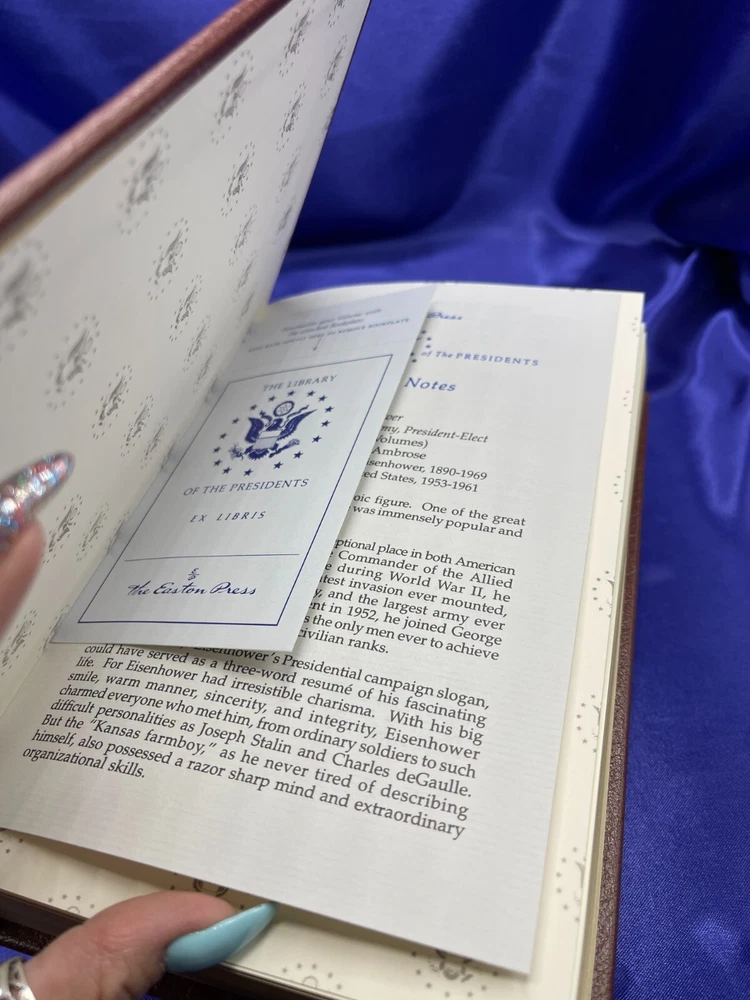 THE LIBRARY
OF THE PRESIDENTS
EX LIBRIS
The Easton Press
Press
of The PRESIDENTS
Notes
my, President-Elect
Volumes)
Ambrose
senhower, 1890-1969
ed States, 1953-1961
oic figure. One of the great
was immensely popular and
ptional place in both American
Commander of the Allied
e during World War II, he
test invasion ever mounted,
y, and the largest army ever
nt in 1952, he joined George
s the only men ever to achieve
civilian ranks.
Eisenhower's Presidential campaign slogan,
could have served as a three-word resumé of his fascinating
life. For Eisenhower had irresistible charisma. With his big
smile, warm manner, sincerity, and integrity, Eisenhower
charmed everyone who met him, from ordinary soldiers to such
difficult personalities as Joseph Stalin and Charles deGaulle.
But the "Kansas farmboy," as he never tired of describing
himself, also possessed a razor sharp mind and extraordinary
organizational skills.